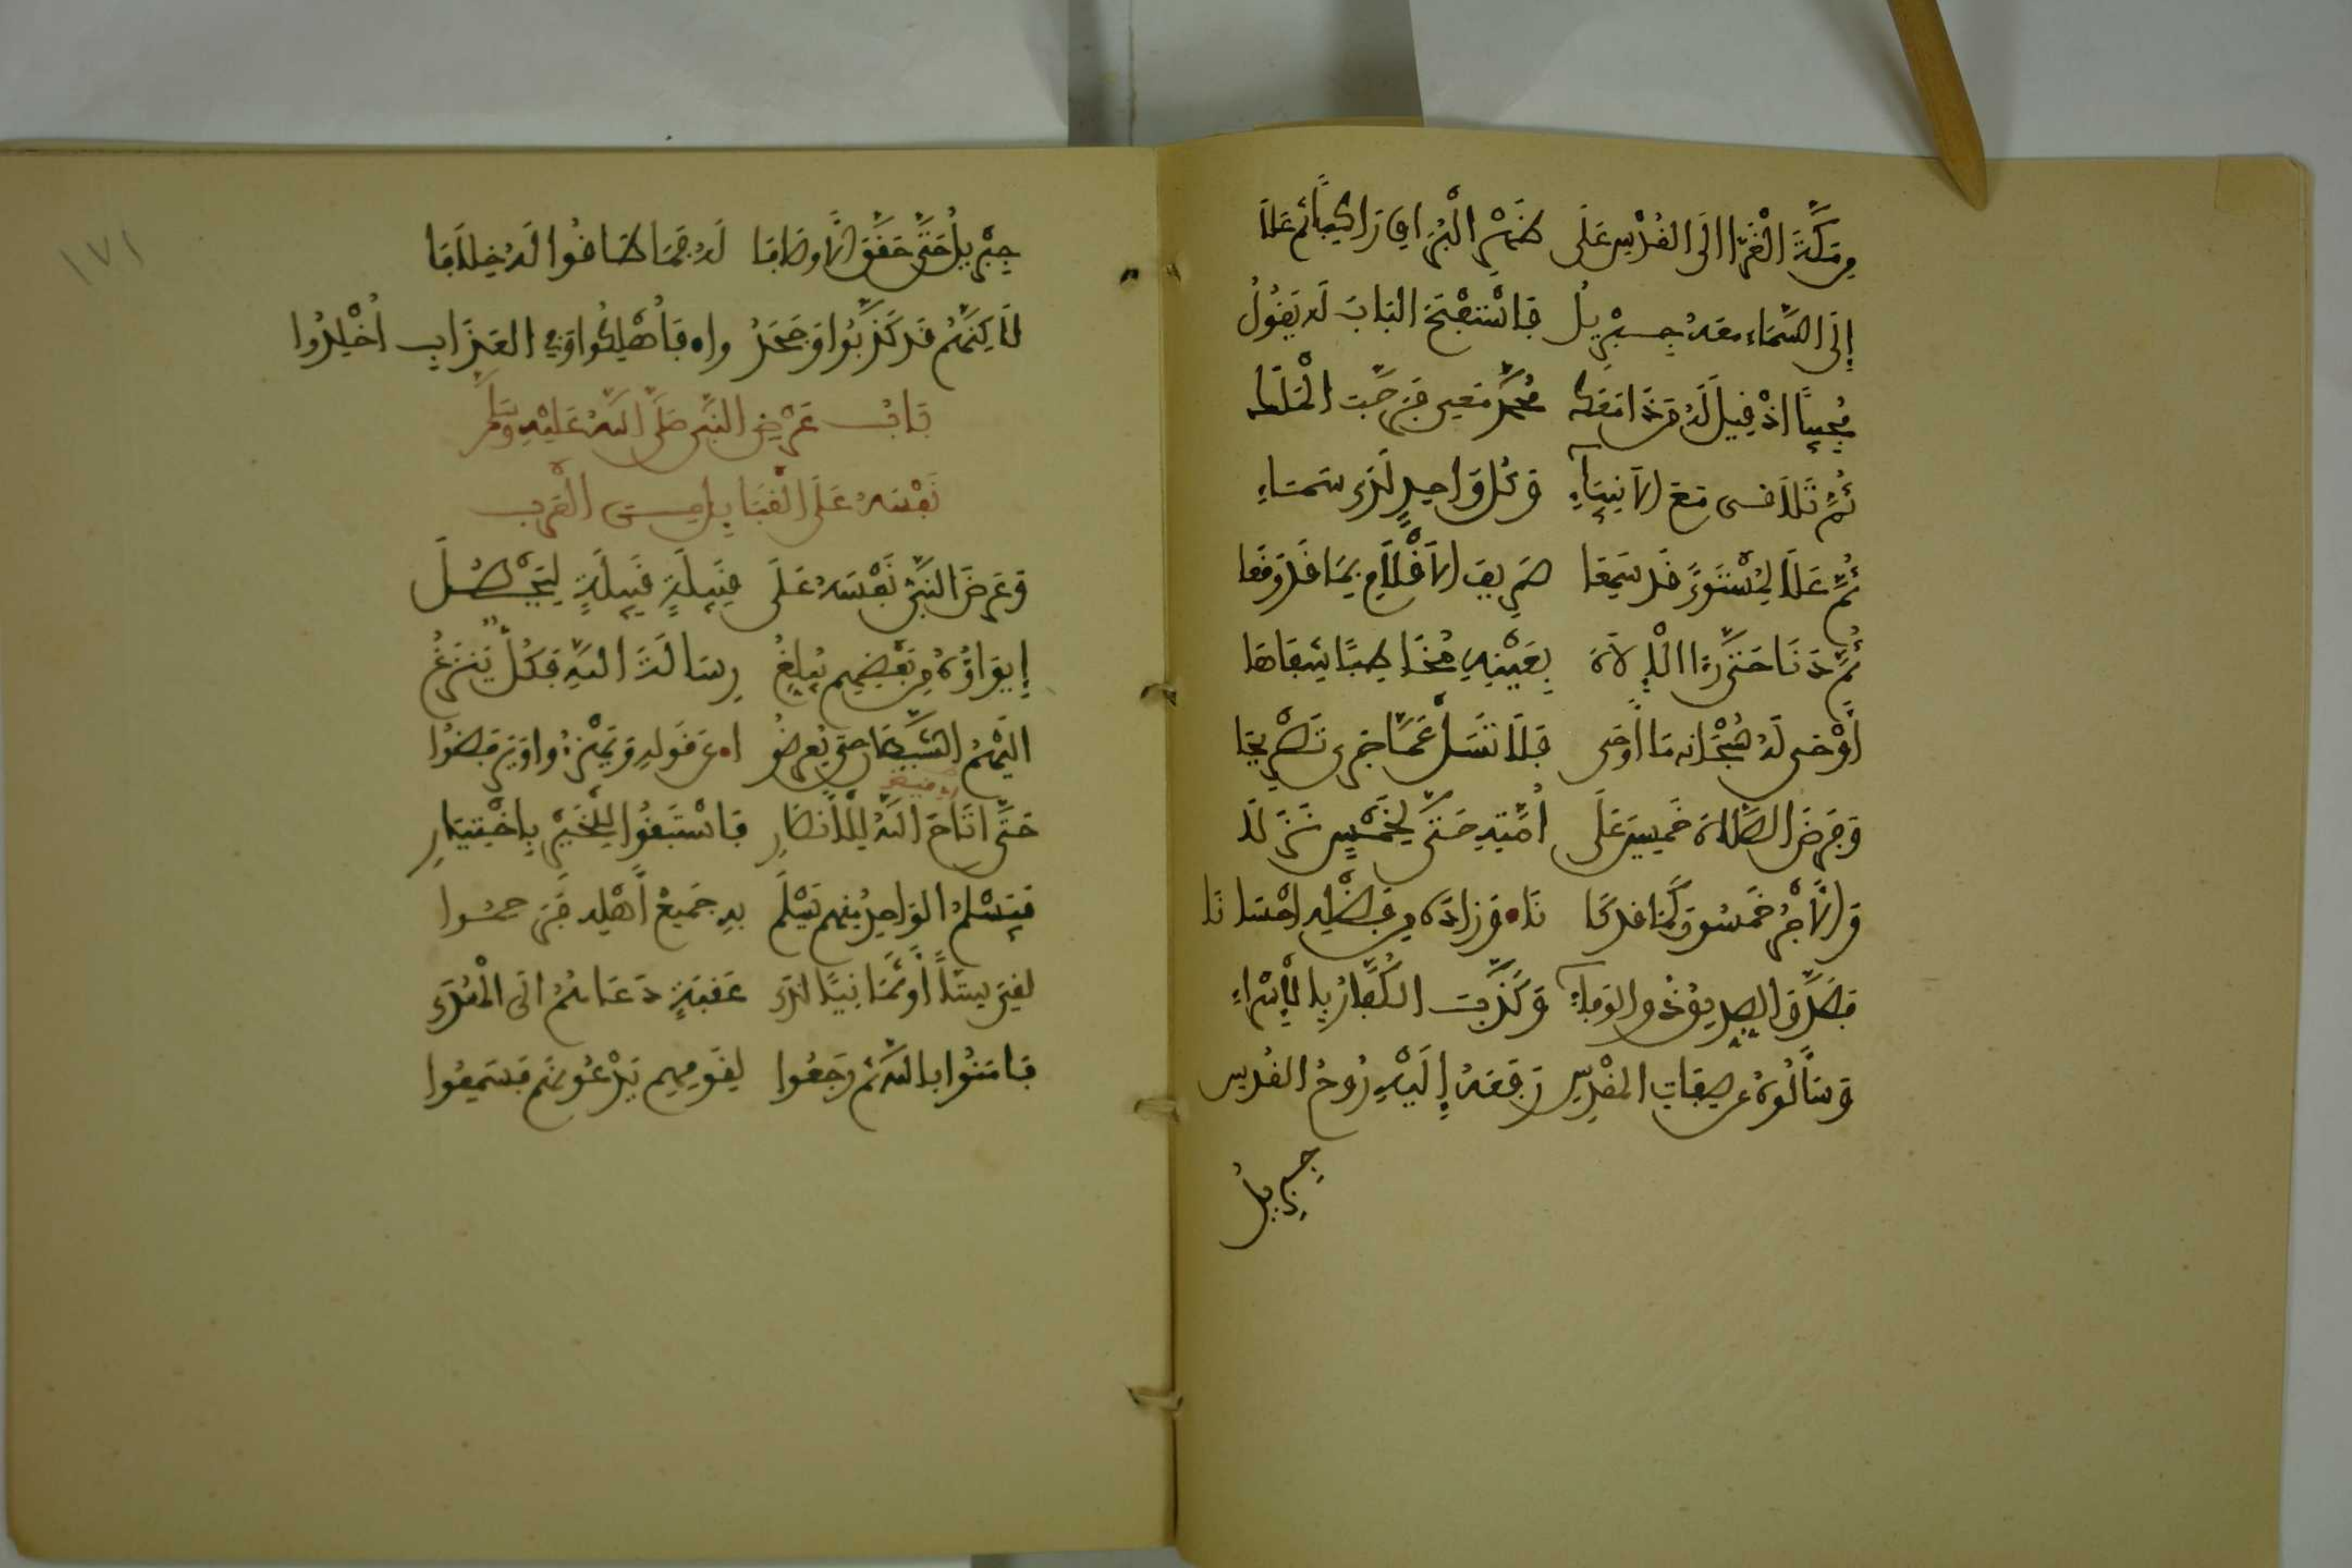 مِن مَكَّةَ الْغَرَّا الَى القُدْسِ عَلَى ظَهْرِ الْبُرَاقِ رَاكِبًا ثُم عَلَا
إِلَى السَّمَاءِ معَهُ جِبْرِيلُ فَاسْتَفْتَحَ البَابَ لَه يَقُولُ
مُجِيبًا اذْ قِيلَ لَهُ مَن ذَا مَعَك مُحَمَّد مَعِي فَرَحَّبَت الْمَلَك
ثُمَّ تَلَاقى مَعَ الاَنبِيَآءِ وَكُل وَاحِدٍ لَدَى سَمَاءِ
ثُمَّ عَلَا لِمُسْتَوىً قَد سَمِعَا صَرِيفَ الاَقْلَامِ بِمَا قَد وَقَعَا
ثُمَّ دَنَا حَتَّى رَءَا الْإِلَاهَ بِعَيْنِهِ مُخَاطِبًا شِفَاهَا
أَوْحَى لَهُ سُبْحَانَه مَا أَوحَى فَلَا تَسَلْ عَمَّا جَرى تَصْرِيحَا
وَفَرَضَ الصَّلَاةَ خَمسِينَ عَلَى أُمَّتِهِ حَتَّى لِخَمْسٍ نَزَلَا
وَالأَجْرُ خَمسُونَ كَمَا قَد كَا نَا وَزَادَهُ مِن فَضْلِهِ احْسَانَا
فَصَدَّقَ الصِّدِّيقُ ذُو الوَفَآءِ وَكَذَّبَت الْكُفَّارُ بِالإِسْرَاءِ
وَسَأَلُوهُ عَن صِفَاتِ المَقْدِسِ رَفَعَهُ إِلَيْهِ رُوحُ القُدسِ
جِبْرِيلُ
جِبْرِيلُ حَتَّى حَقَّقَ الاَوصَافَا لَهُ فَمَا طَاقُوا لَهُ خِلَافَا
لَاكِنَّهُم قَد كَذَّبُوا وَجَحَدُ وا فَأُهْلِكُوا وَفِي العَذَابِ أُخْلِدُوا
بَابُ عَرْضِ النَّبِي صَلَّى اللَّهُ عَلَيْهِ وَسَلَّمَ
نَفْسَهُ عَلَى الْقَبَايِلِ مِنَ الْعَرَبِ
وَعَرَضَ النَّبِيُّ نَفْسَهُ عَلَى قَبِيلَةٍ قَبِيلَةٍ لِيَحْصُلَ
إِيوَاؤُهُ مِن بَعْضِهِم يُبلِغُ رِسَالَةَ اللَّهِ فَكُلٌّ يَنزَغُ
الَيْهِمُ الشَّيْطَانُ حتى يُعرِضُ وا عَن قَولِهِ وَيَهْزَءُوا وَيَرفضُوا
حَتَّى اتَاحَ اللَّهُ لِلْأَنصَارِ فَاسْتَبَقُوا لِلْخَيْرِ بِاخْتِيَارِ
فَيُسْلِمُ الوَاحِدُ مِنهم يُسْلِمُ بِهِ جَمِيعُ أَهْلِه
لَقِيَ سِتًّا أَو ثَمَانِيًا لَدَى عَقَبَةٍ دَعَاهُمُ الَى الْهُدَى
فَامَنُوا بِاللَّهِ ثم رَجَعُوا لِقَومِهِم يَدْعُونَهُم فَسَمِعُوا
١٧١